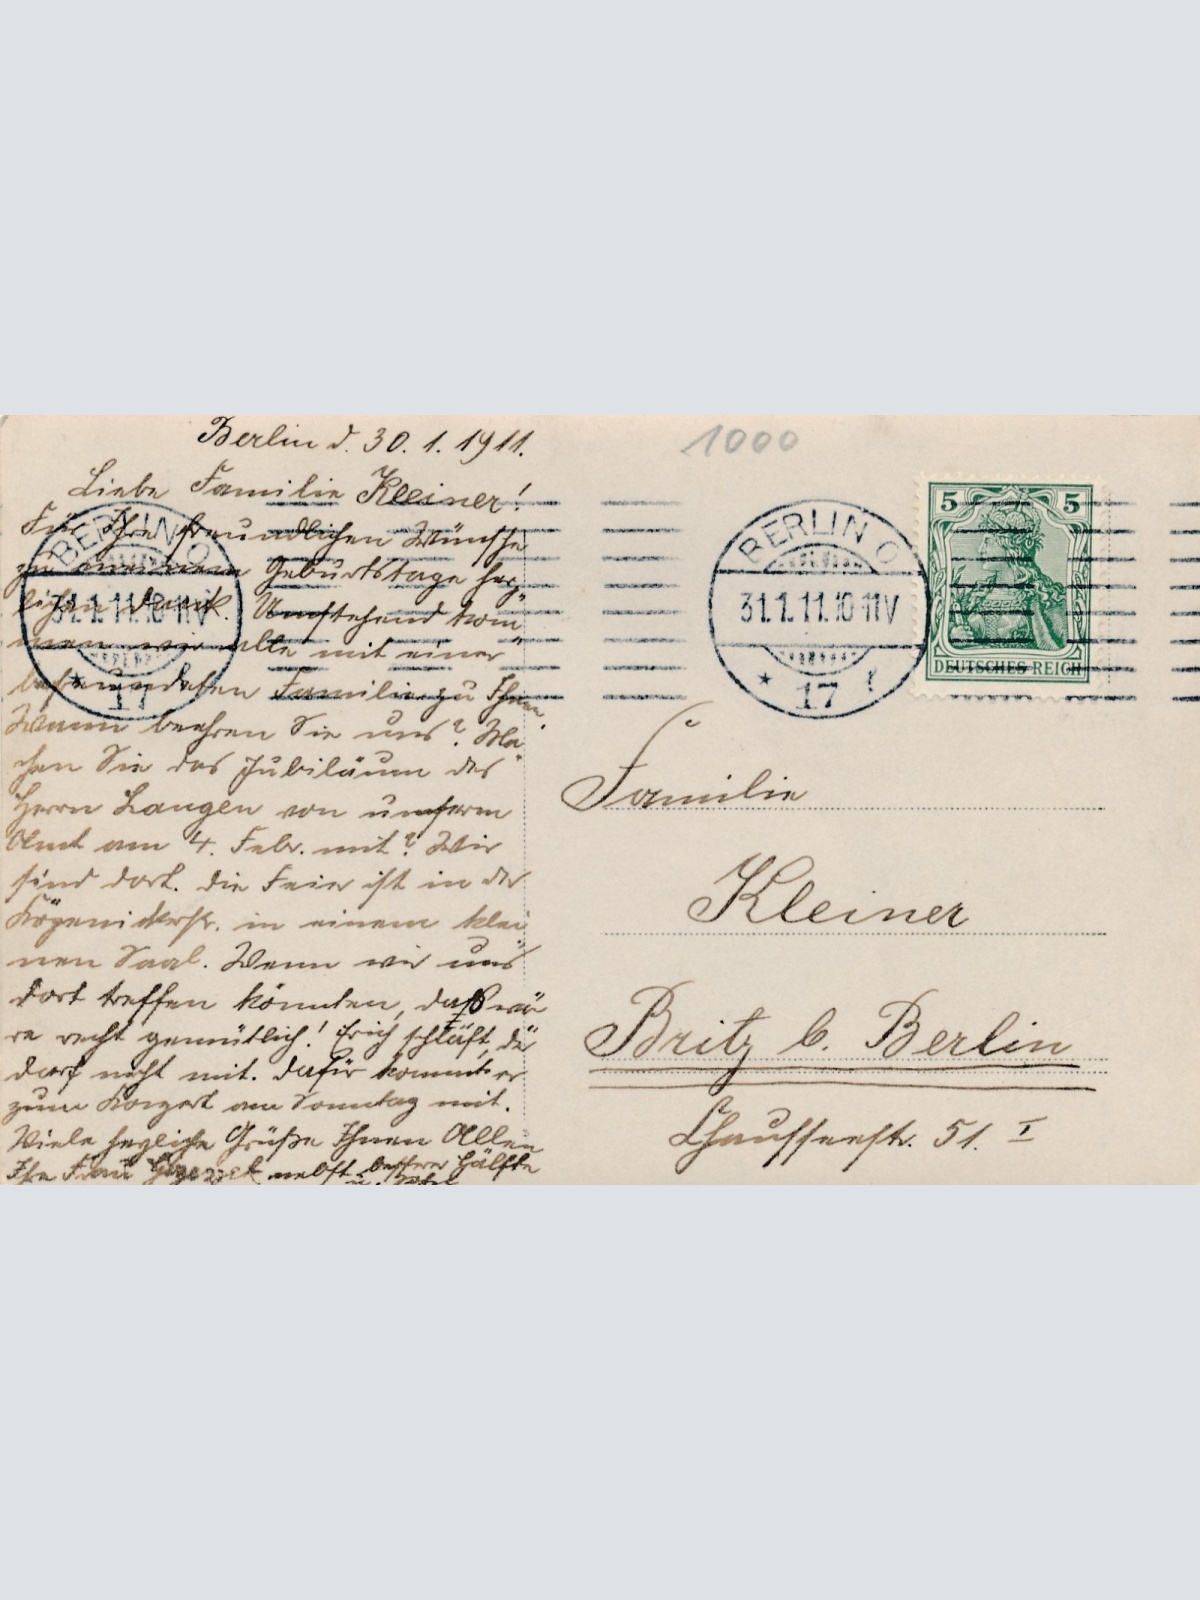 Berlin d. 30. 1. 1911.
Liebe Familie Kleiner!
Für Ihre freundlichen Wünsche
zu meinem Geburtstage herz
lichen Dank. Umstehend kom
men wir alle mit einer
befreundeten Familie zu Ihnen.
Wann beehren Sie uns? Ma
chen Sie das Jubiläum des
Herrn Langen von unserm
Amt am 4. Febr. mit? Wir
sind dort. Die Feier ist in der
Köpenickerstr. in einem klei
nen Saal. Wenn wir uns
dort treffen könnten, daß wä
re recht gemütlich! Erich schläft, der
darf nicht mit. Dafür kommt er
zum Konzert am Sonntag mit.
Viele herzliche Grüße Ihnen Allen
Ihre Frau nebst besserer Hälfte
u.
1000
BERLIN O
31.1.11.10-11V
* 17 f
BERLIN O
31.1.11.10-11V
* 17 f
5 5
DEUTSCHES REICH
Familie
Kleiner
Britz b. Berlin
Chausseestr. 51. I